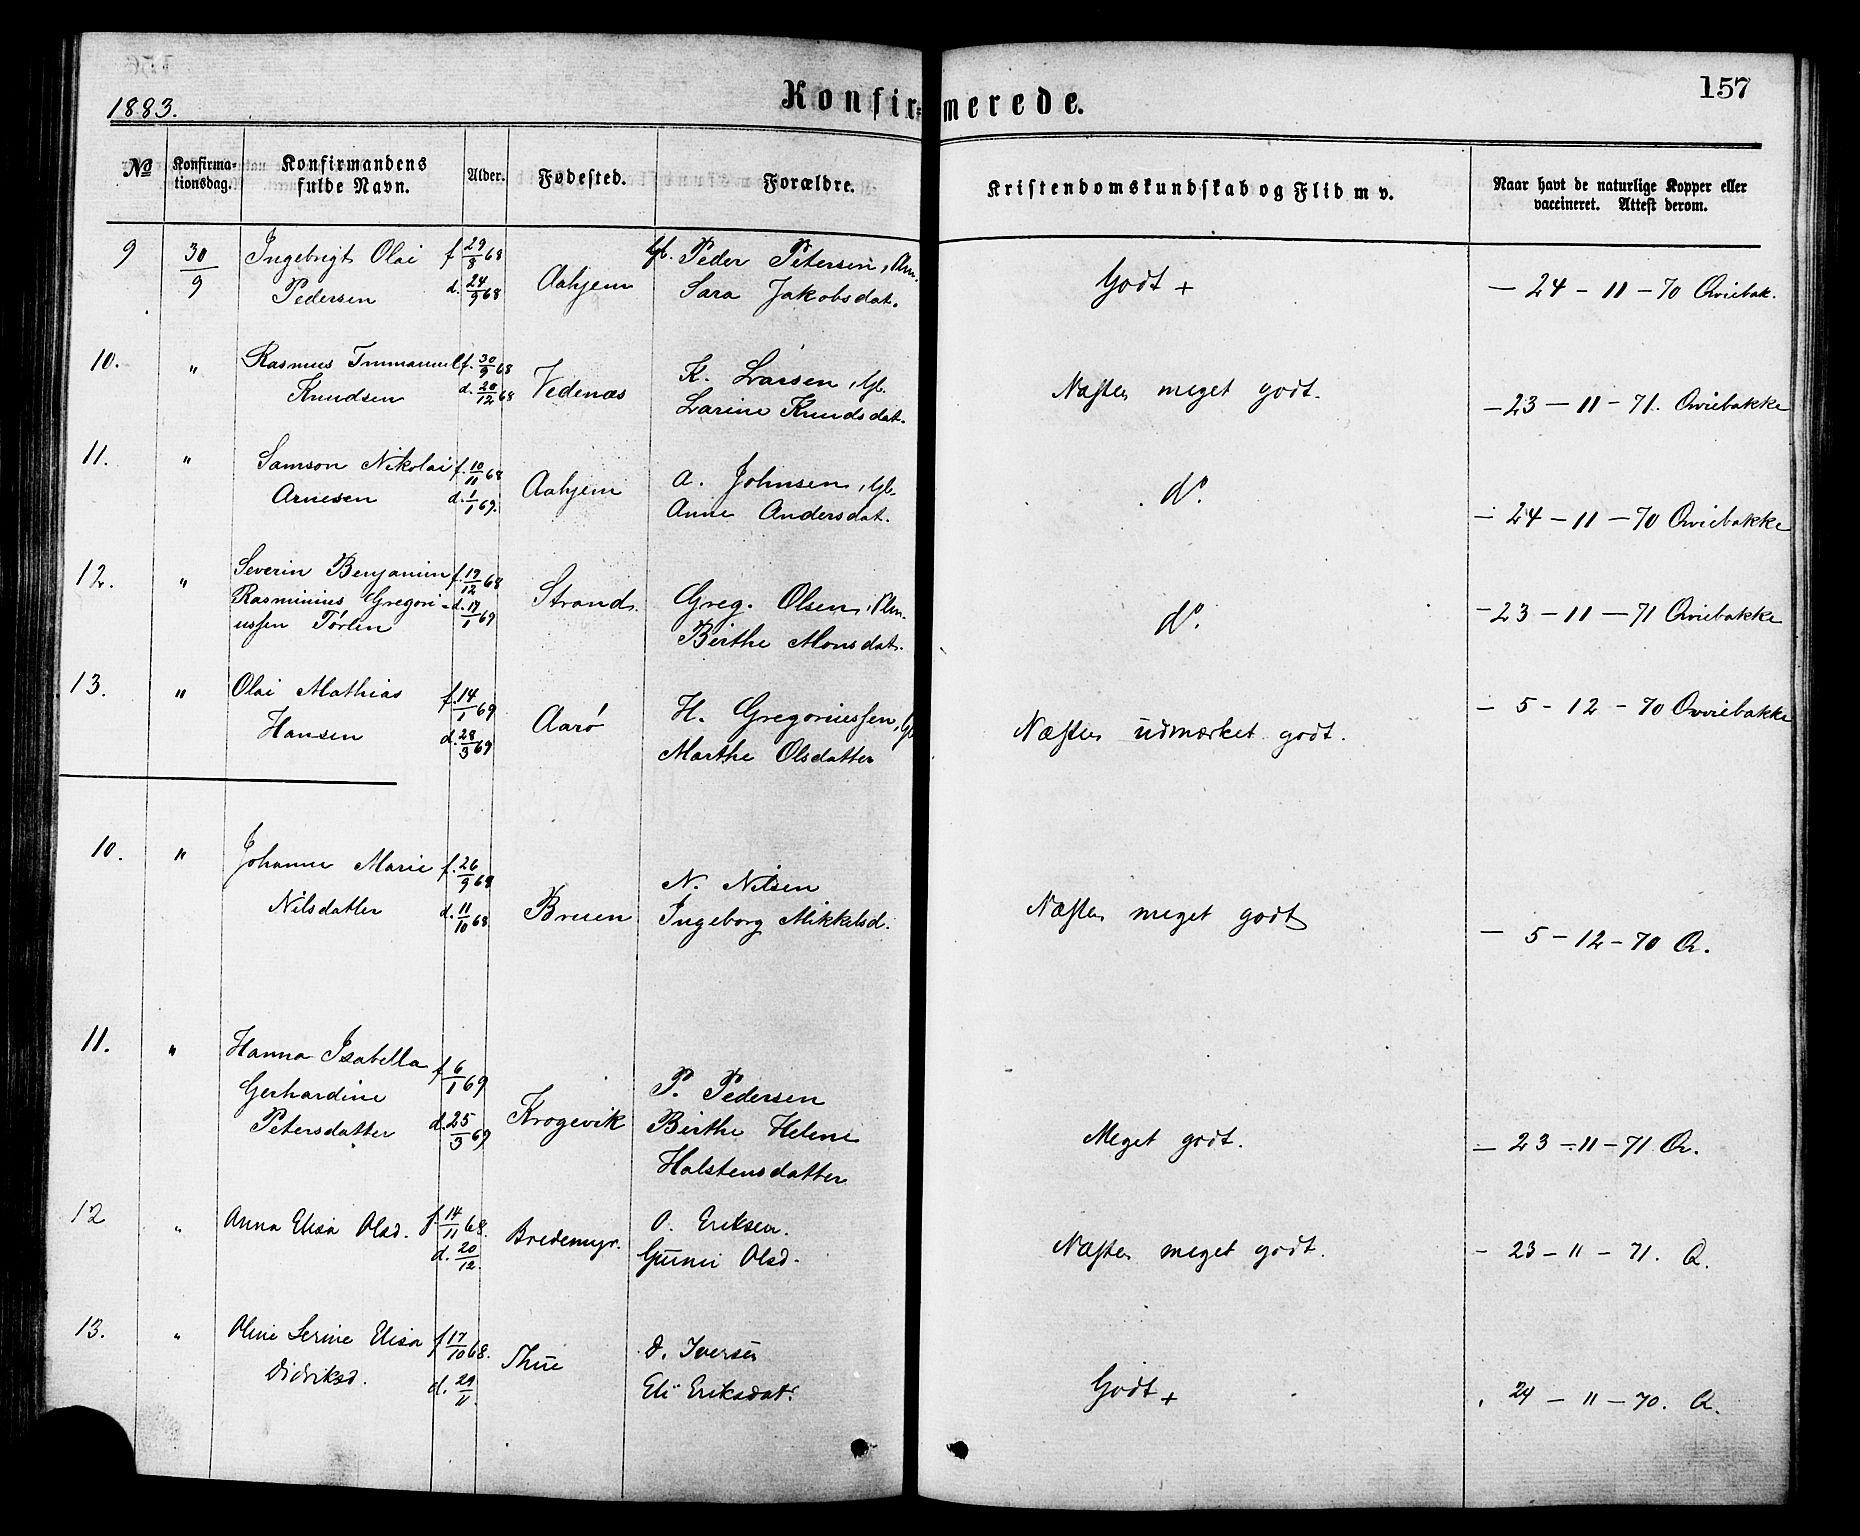 157
1883.
Konfirmerede.
No
Konfirma-
tionsdag.
Konfirmandens
fulde Navn.
Alder.
Fødested.
Forældre.
Kristendomskundskab og Flid m v.
Naar havt de naturlige Kopper eller
vaccineret. Attest derom.
9 30/9 Ingebrigt Olai f 29/8 68 Gb. Peder Petersen,
Pedersen d. 24/9 68 Aahjem Sara Jakobsdat. Godt + — 24 — 11 — 70
10. " Rasmus Immanuel f. 30/9 68 K. Larsen, Gb.
Knudsen d. 20/12 68 Vedenæs Larine Knudsdat. Næsten meget godt. — 23 — 11 — 71.
11. " Samson Nikolai f. 10/11 68 A. Johnsen, Gb.
Arnesen d. 1/1 69. Aahjem Anne Andersdat. do. — 24 — 11 — 70
12. " Severin Benjamin f. 19/12 68
Rasminius Gregori- d. 17/1 69 Strand. Greg. Olsen,
ussen Tørlen Birthe Monsdat. do. — 23 — 11 — 71
13. " Olai Mathias f. 14/1 69 H. Gregoriussen, Gb
Hansen d. 28/3 69 Aarø Marthe Olsdatter Næsten udmærket godt. — 5 - 12 - 70
10. " Johanne Marie f. 26/9 68 N. Nilsen
Nilsdatter d. 11/10 68 Bruen Ingeborg Mikkelsd. Næsten meget godt — 5 — 12 — 70 Q.
11. " Hanna Isabella f 6/1 69
Gerhardine P. Pedersen
Petersdatter d. 25/3 69 Krogevik Birthe Helene
Holstensdatter Meget godt. — 23 — 11 — 71 Q.
12 " Anna Elisa Olsd. f. 14/11 68. O. Eriksen.
d. 20/12. Bredemyr. Olsd. Næsten meget godt. - 23 — 11 — 71. Q.
13. " Oline Serine Elisa f 17/10 68. D. Iversen
Didriksd. d. 29/11. Thue Eli Eriksdat. Godt + 24 — 11 — 70. Q.